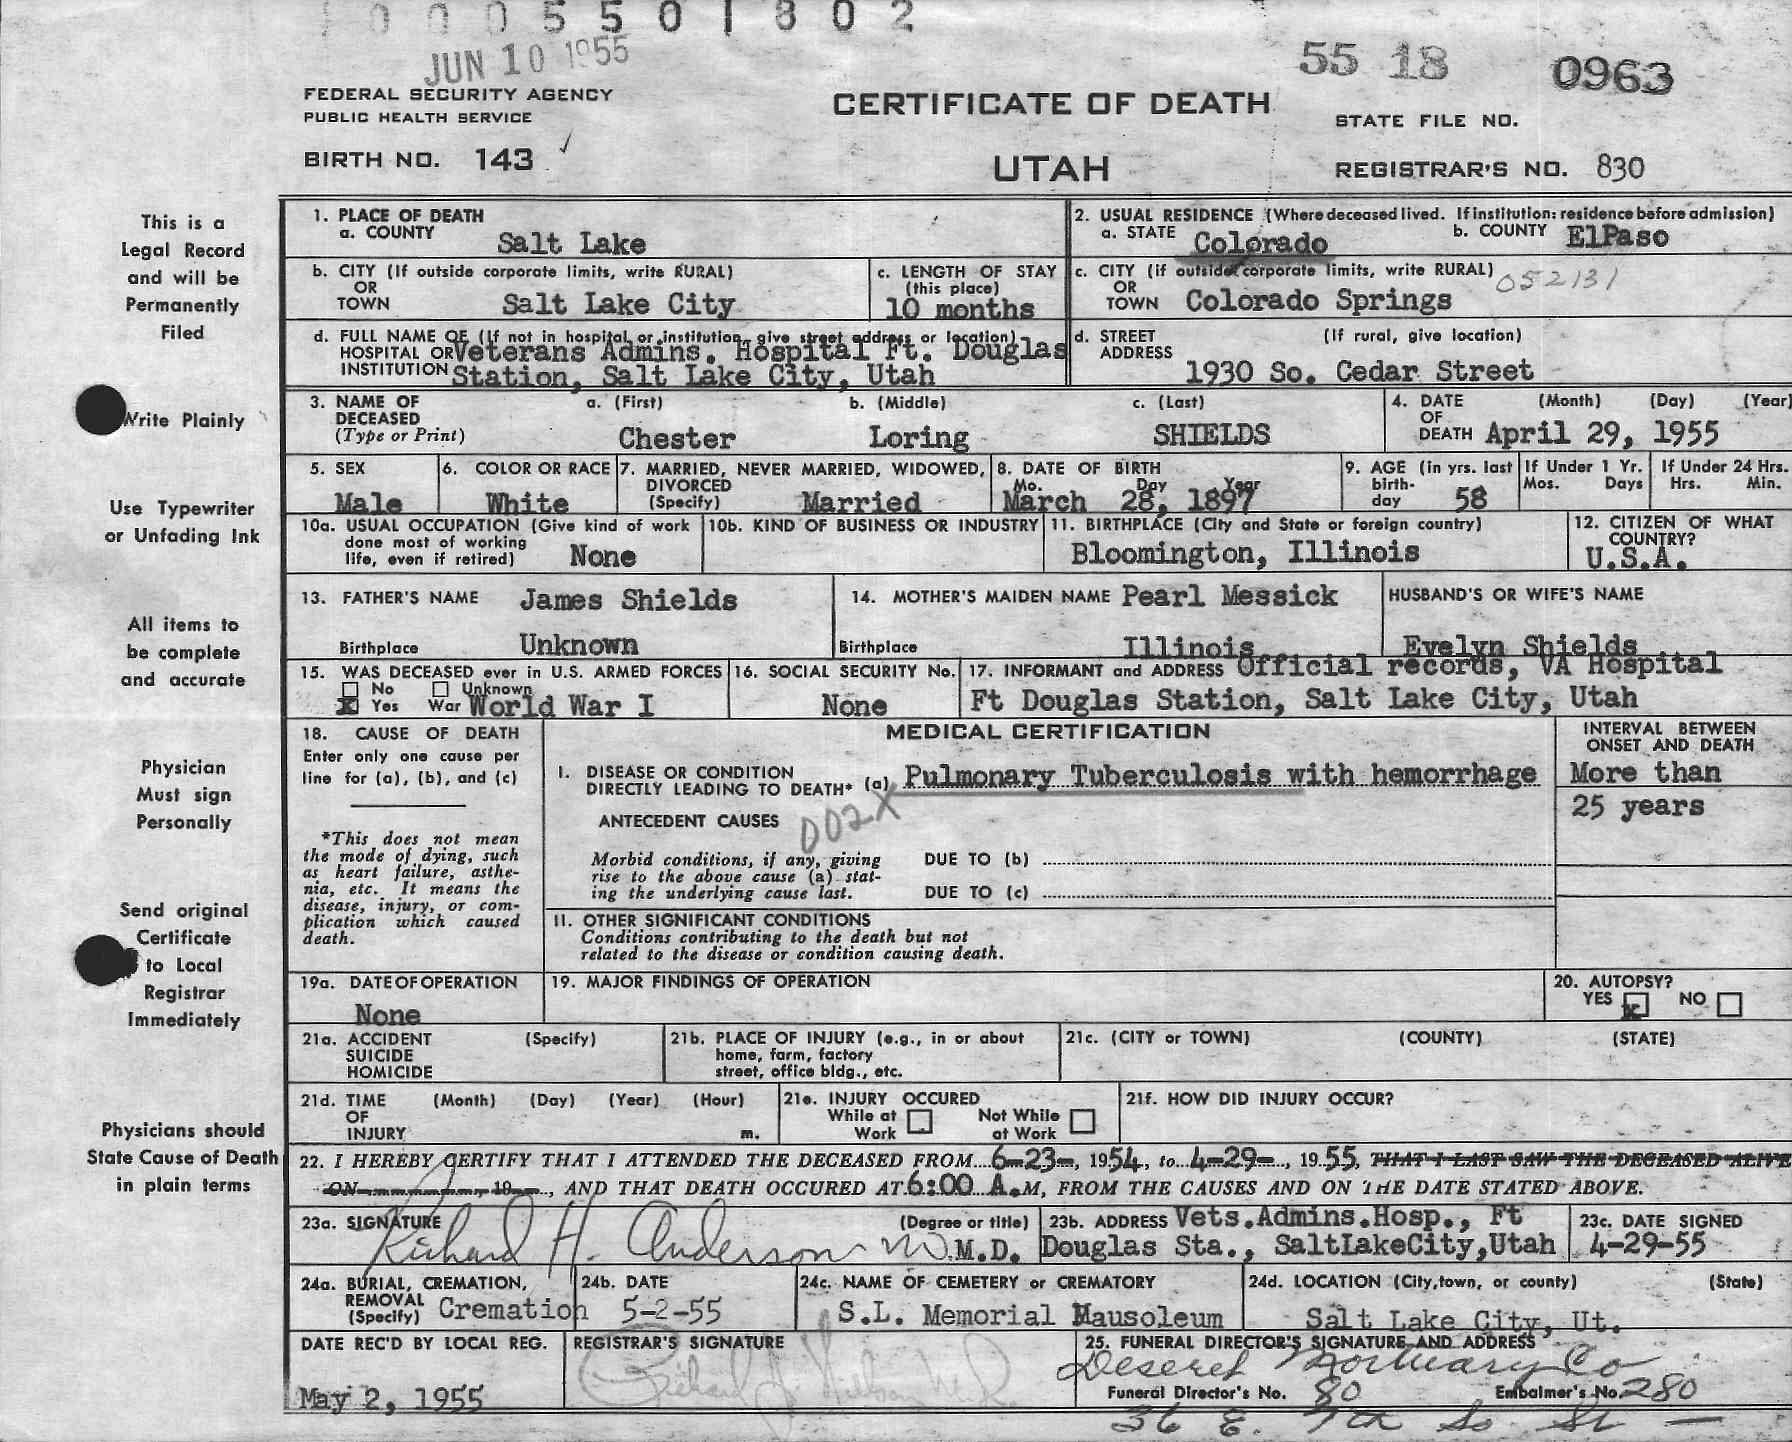 0005501802
JUN 10 1955
55 18 0963
FEDERAL SECURITY AGENCY
PUBLIC HEALTH SERVICE
CERTIFICATE OF DEATH
STATE FILE NO.
BIRTH NO. 143
UTAH
REGISTRAR'S NO. 830
This is a
Legal Record
and will be
Permanently
Filed
Write Plainly
Use Typewriter
or Unfading Ink
All items to
be complete
and accurate
Physician
Must sign
Personally
Send original
Certificate
to Local
Registrar
Immediately
Physicians should
State Cause of Death
in plain terms
1. PLACE OF DEATH
a. COUNTY Salt Lake
2. USUAL RESIDENCE (Where deceased lived. If institution: residence before admission)
a. STATE Colorado b. COUNTY ElPaso
b. CITY (If outside corporate limits, write RURAL)
OR
TOWN Salt Lake City
c. LENGTH OF STAY
(this place)
10 months
c. CITY (if outside corporate limits, write RURAL) 052131
OR
TOWN Colorado Springs
d. FULL NAME OF (If not in hospital or institution, give street address or location)
HOSPITAL OR Veterans Admins. Hospital Ft. Douglas
INSTITUTION Station, Salt Lake City, Utah
d. STREET (If rural, give location)
ADDRESS
1930 So. Cedar Street
3. NAME OF a. (First) b. (Middle) c. (Last)
DECEASED
(Type or Print) Chester Loring SHIELDS
4. DATE (Month) (Day) (Year)
OF
DEATH April 29, 1955
5. SEX
Male
6. COLOR OR RACE
White
7. MARRIED, NEVER MARRIED, WIDOWED,
DIVORCED
(Specify) Married
8. DATE OF BIRTH
Mo. Day Year
March 28, 1897
9. AGE (in yrs. last
birth-
day 58
If Under 1 Yr.
Mos. Days
If Under 24 Hrs.
Hrs. Min.
10a. USUAL OCCUPATION (Give kind of work
done most of working
life, even if retired) None
10b. KIND OF BUSINESS OR INDUSTRY
11. BIRTHPLACE (City and State or foreign country)
Bloomington, Illinois
12. CITIZEN OF WHAT
COUNTRY?
U.S.A.
13. FATHER'S NAME James Shields
Birthplace Unknown
14. MOTHER'S MAIDEN NAME Pearl Messick
Birthplace Illinois
HUSBAND'S OR WIFE'S NAME
Evelyn Shields
15. WAS DECEASED ever in U.S. ARMED FORCES
No Unknown
x Yes War World War I
16. SOCIAL SECURITY No.
None
17. INFORMANT and ADDRESS Official records, VA Hospital
Ft Douglas Station, Salt Lake City, Utah
18. CAUSE OF DEATH
Enter only one cause per
line for (a), (b), and (c)
*This does not mean
the mode of dying, such
as heart failure, asthe-
nia, etc. It means the
disease, injury, or com-
plication which caused
death.
MEDICAL CERTIFICATION
I. DISEASE OR CONDITION
DIRECTLY LEADING TO DEATH* (a) Pulmonary Tuberculosis with hemorrhage
002X
ANTECEDENT CAUSES
Morbid conditions, if any, giving DUE TO (b)
rise to the above cause (a) stat-
ing the underlying cause last. DUE TO (c)
II. OTHER SIGNIFICANT CONDITIONS
Conditions contributing to the death but not
related to the disease or condition causing death.
INTERVAL BETWEEN
ONSET AND DEATH
More than
25 years
19a. DATE OF OPERATION
None
19. MAJOR FINDINGS OF OPERATION
20. AUTOPSY?
YES x NO
21a. ACCIDENT (Specify)
SUICIDE
HOMICIDE
21b. PLACE OF INJURY (e.g., in or about
home, farm, factory
street, office bldg., etc.
21c. (CITY or TOWN) (COUNTY) (STATE)
21d. TIME (Month) (Day) (Year) (Hour)
OF
INJURY m.
21e. INJURY OCCURED
While at Not While
Work at Work
21f. HOW DID INJURY OCCUR?
22. I HEREBY CERTIFY THAT I ATTENDED THE DECEASED FROM 6-23-, 1954, to 4-29-, 1955, THAT I LAST SAW THE DECEASED ALIVE
ON , 19 , AND THAT DEATH OCCURED AT 6:00 A.M, FROM THE CAUSES AND ON THE DATE STATED ABOVE.
23a. SIGNATURE (Degree or title)
Richard H. Anderson M.D.
23b. ADDRESS Vets.Admins.Hosp., Ft
Douglas Sta., SaltLakeCity,Utah
23c. DATE SIGNED
4-29-55
24a. BURIAL, CREMATION,
REMOVAL
(Specify) Cremation
24b. DATE
5-2-55
24c. NAME OF CEMETERY or CREMATORY
S.L. Memorial Mausoleum
24d. LOCATION (City,town, or county) (State)
Salt Lake City, Ut.
DATE REC'D BY LOCAL REG.
May 2, 1955
REGISTRAR'S SIGNATURE
25. FUNERAL DIRECTOR'S SIGNATURE AND ADDRESS
Deseret Mortuary Co
Funeral Director's No. 80 Embalmer's No. 280
36 E. 7th So St